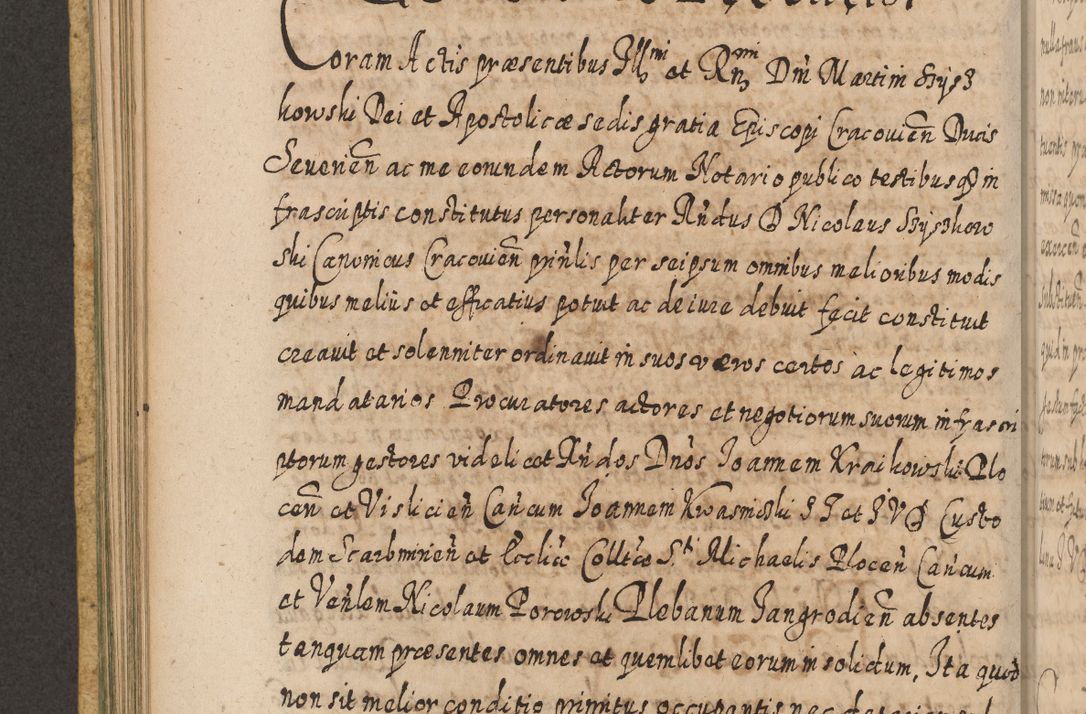 Coram Actis præsentibus Illmi et Rndmi Dni Martini Szysz
kowski Dei et Apostolicæ sedis gratia Episcopi Cracovien̄ Ducis
Severien̄ ac me eorundem Actorum Notario publico testibusq3 in
frascriptis constitutus personaliter Rn̄dus D Nicolaus Szyszkow
ski Canonicus Cracovien̄ prin̄lis per seipsum omnibus melioribus modis
quibus melius et efficatius potuit ac de iure debuit fecit constituit
creavit et solenniter ordinavit in suos veros certos ac legitimos
mandatarios Procuratores actores et negotiorum suorum infrascri
ptorum gestores videlicet Rn̄dos Dnos Joannem Kraikowski Plo
cen̄ et Vislicien̄ Can̄cum Joannem Kwasnicki S T et I V D Custo
dem Scarbmirien̄ et Ecclīæ Colltæ S.ti Michaelis Plocen̄ Can̄cum
et Ven̄lem Nicolaum Porowski Plebanum Jangrodien̄ absentes
tanquam præsentes omnes et quemlibet eorum in solidum, Ita quod
non sit melior conditio primitus occupantis nec